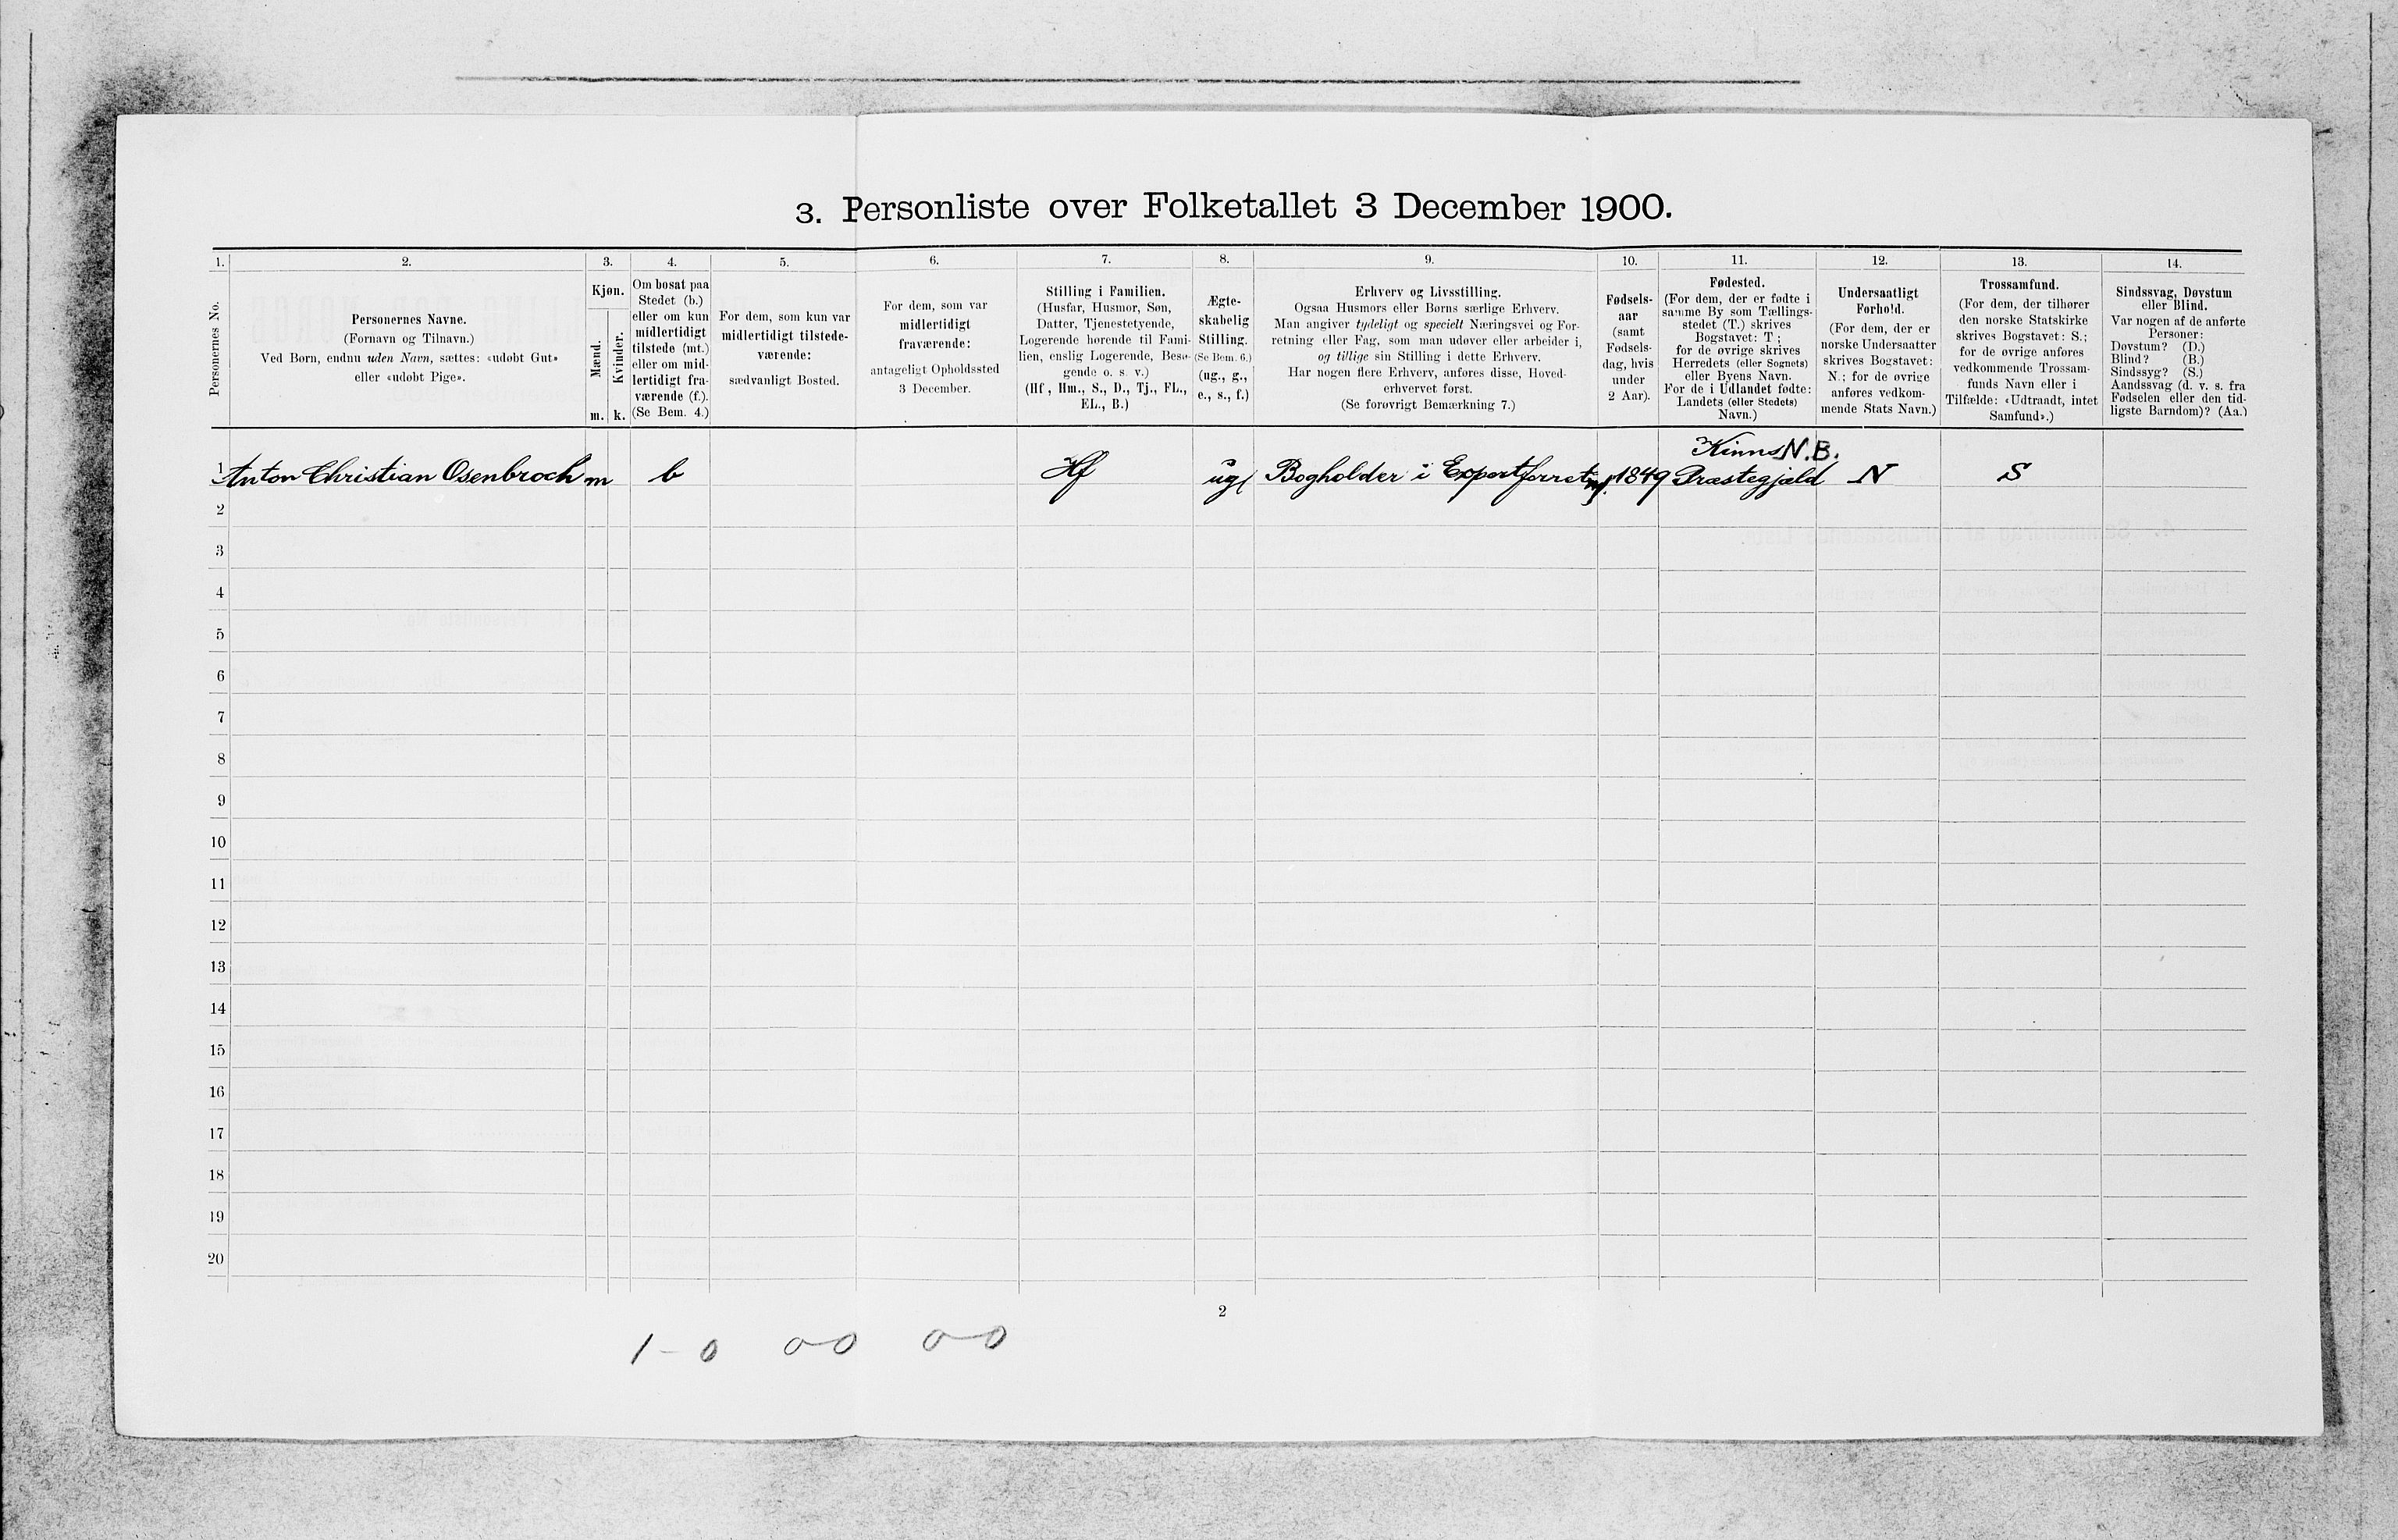 3. Personliste over Folketallet 3 December 1900.
1.
Personernes No.
2.
Personernes Navne.
(Fornavn og Tilnavn.)
Ved Børn, endnu uden Navn, sættes: «udøbt Gut»
eller «udøbt Pige».
3.
Kjøn.
Mænd.
Kvinder.
m. k.
4.
Om bosat paa
Stedet (b.)
eller om kun
midlertidigt
tilstede (mt.)
eller om mid-
lertidigt fra-
værende (f.).
(Se Bem. 4.)
5.
For dem, som kun var
midlertidigt tilstede-
værende:
sædvanligt Bosted.
6.
For dem, som var
midlertidigt
fraværende:
antageligt Opholdssted
3 December.
7.
Stilling i Familien.
(Husfar, Husmor, Søn,
Datter, Tjenestetyende,
Logerende hørende til Fami-
lien, enslig Logerende, Besø-
gende o. s. v.)
(Hf., Hm., S., D., Tj., FL.,
EL., B.)
8.
Ægte-
skabelig
Stilling.
(Se Bem. 6.)
(ug., g.,
e., s., f.)
9.
Erhverv og Livsstilling.
Ogsaa Husmors eller Børns særlige Erhverv.
Man angiver tydeligt og specielt Næringsvei og For-
retning eller Fag, som man udøver eller arbeider i,
og tillige sin Stilling i dette Erhverv.
Har nogen flere Erhverv, anføres disse, Hoved-
erhvervet først.
(Se forøvrigt Bemærkning 7.)
10.
Fødsels-
aar
(samt
Fødsels-
dag, hvis
under
2 Aar).
11.
Fødested.
(For dem, der er fødte i
samme By som Tællings-
stedet (T.) skrives
Bogstavet: T ;
for de øvrige skrives
Herredets (eller Sognets)
eller Byens Navn.
For de i Udlandet fødte:
Landets (eller Stedets)
Navn.)
12.
Undersaatligt
Forhold.
(For dem, der er
norske Undersaatter
skrives Bogstavet:
N.; for de øvrige
anføres vedkom-
mende Stats Navn.)
13.
Trossamfund.
(For dem, der tilhører
den norske Statskirke
skrives Bogstavet: S.;
for de øvrige anføres
vedkommende Trossam-
funds Navn eller i
Tilfælde: «Udtraadt, intet
Samfund».)
14.
Sindssvag, Døvstum
eller Blind.
Var nogen af de anførte
Personer:
Døvstum? (D.)
Blind? (B.)
Sindssyg? (S.)
Aandssvag (d. v. s. fra
Fødselen eller den tid-
ligste Barndom)? (Aa.)
Kinns N.B.
1 Anton Christian Osenbroch m b Hf ug Bogholder i Exportforretng. 1849 Præstegjæld N S
2
3
4
5
6
7
8
9
10
11
12
13
14
15
16
17
18
19
20
2
1 - 0 0-0 0-0